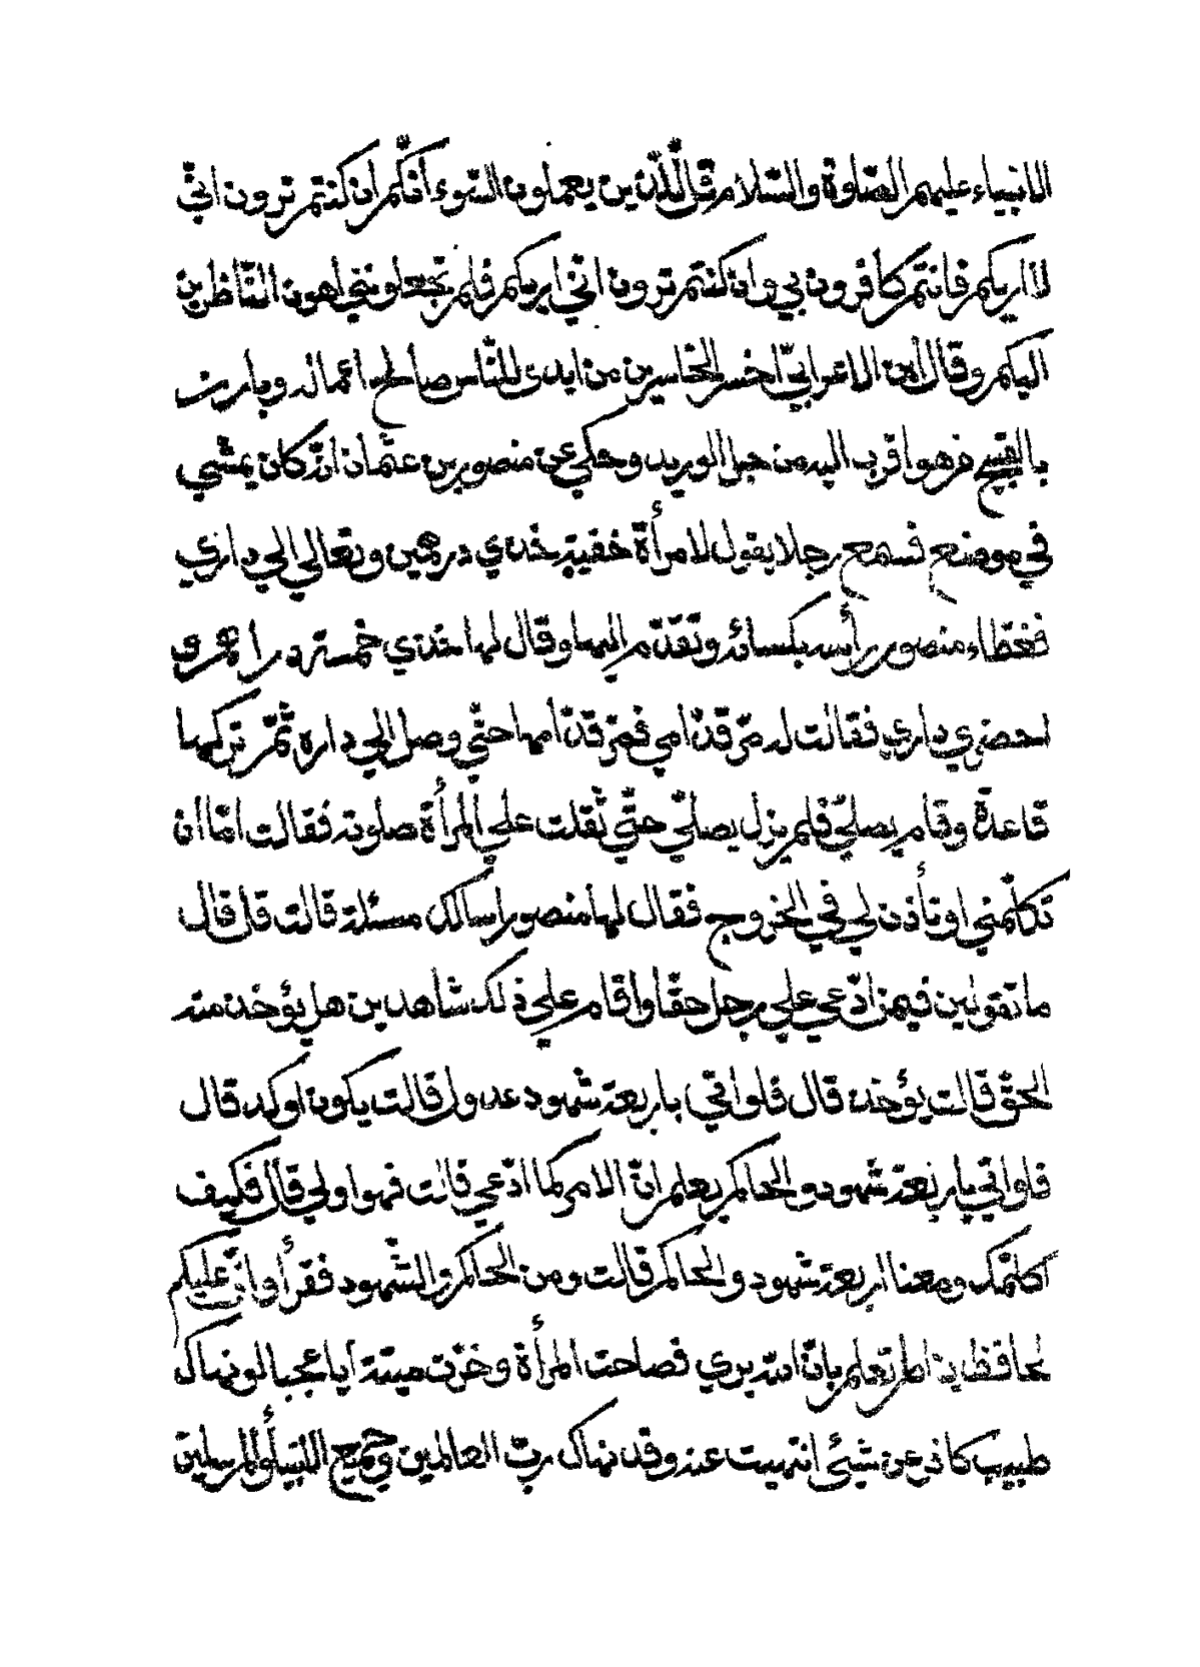 الانبياء عليهم الصّلوة والسّلام قل للّذين يعملون السّوء أنّكم ان كنتم ترون انّي
لا اريكم فانتم كافرون بي وان كنتم ترون انّي اريكم فلم تجعلونني اهون النّاظرين
اليكم وقال ابن الاعرابيّ اخسر الخاسرين من ابدى للنّاس صالح اعماله وبارز
بالقبيح من هو اقرب اليه من حبل الوريد وحكي عن منصور بن عثمان انّه كان يمشي
في موضع فسمع رجلا يقول لامرأة خفية خذي درهمين وتعالي الي داري
فغطاء منصور رأسه بكسائه وتقدّم اليها وقال لها خذي خمسة دراهم و
احضري داري فقالت له مرّ قدّامي فمرّ قدّامها حتّي وصل الي داره ثمّ تركها
قاعدة وقام يصلّي فلم يزل يصلّي حتّي ثقلت علي المرأة صلوته فقالت امّا ان
تكلّمني او تأذن لي في الخروج فقال لها منصور اسالك مسئلة قالت قل قال
ما تقولين فيمن ادّعي علي رجل حقّا واقام علي ذلك شاهدين هل يؤخذ منه
الحقّ قالت يؤخذ قال فلو اتي باربعة شهود عدول قالت يكون اوكد قال
فلو اتي باربعة شهود والحاكم يعلم انّ الامر كما ادّعي قالت فهو اولي قال فكيف
اكلّمك ومعنا اربعة شهود والحاكم قالت ومن الحاكم والشّهود فقرأ وانّ عليكم
لحافظين الم تعلم بانّ الله يري فصاحت المرأة وخرّت ميتة أيا عجبا لو نهاك
طبيب كافر عن شيئ انتهيت عنه وقد نهاك ربّ العالمين وجميع الانبياء والمرسلين